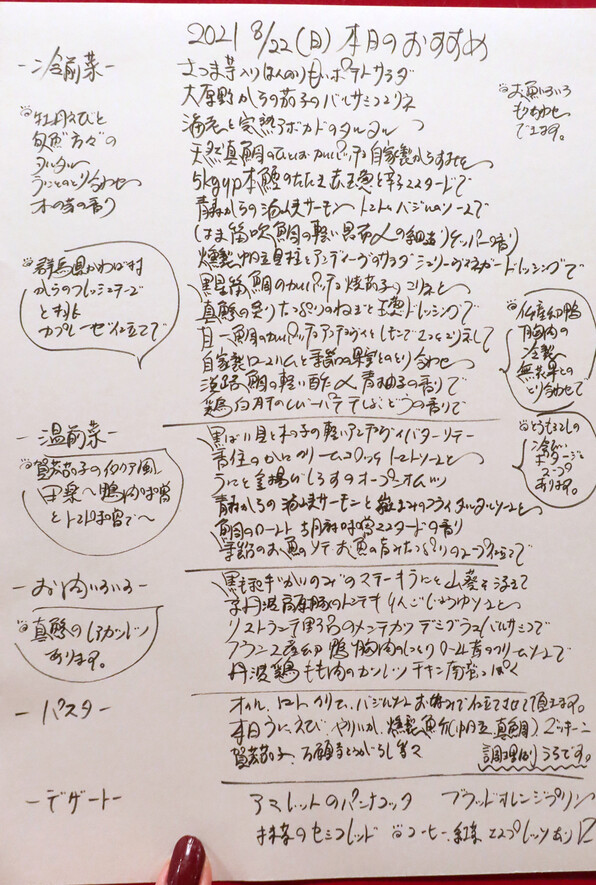 2021 8/22(日)本日のおすすめ
-冷前菜-
さつま芋入りほんのり甘いポテトサラダ
大原野からの茄子のバルサミコマリネ
海老と完熟アボカドのタルタル
天然真鯛のひとはカルパッチョ自家製からすみを
5kgup本鰹のたたき
青森からの海峡サーモン トマトバジルソースで
鯛の軽い昆布〆の細造りケッパーの香り
燻製帆立貝柱とアンディーヴのサラダ シェリーヴィネガードレッシングで
鯛のカルパッチョ 焼茄子のマリネと
真鯵の炙りたっぷりのねぎと ドレッシングで
目一鯛のカルパッチョ アンチョヴィと
自家製ロースハムと季節の果実とのとり合わせ
淡路鯛の軽い酢〆 青柚子の香りで
鶏白肝のレバーパテ ぶどうの香りで
牡丹えびと
旬魚方々の
タルタル
うにとのとり合わせ
木の芽の香り
お魚いろいろ
もり合わせ
できます。
群馬県かわば村
からのフレッシュチーズ
とトマト
カプレーゼ仕立てで
仏産幼鴨
胸肉の
冷製
無花果との
とり合わせで
-温前菜-
黒ばい貝と木の子の軽いアンチョヴィバターソテー
香住のかにクリームコロッケ トマトソースと
うにと釜揚げしらすのオープンオムレツ
青森からの海峡サーモンと のフライ タルタルソースと
鯛のロースト 胡麻味噌マスタードの香り
季節のお魚のソテー お魚の旨みたっぷりのスープ仕立てで
賀茂茄子のイタリア風
田楽へ鴨肉味噌
とトマト味噌で～
とうもろこしの
冷たい
ポタージュ
スープ
あります。
-お肉いろいろ-
黒毛和牛かいのみのステーキ うにと山葵を添えて
京丹波高原豚のトンテキ りんごじょうゆソースと
リストランテ野呂のメンチカツ デミグラスバルサミコで
フランス産幼鴨胸肉のしっとりロースト 香のクリームソースで
丹波鶏もも肉のカツレツ チキン南蛮っぽく
真鯵のレアカツレツ
あります。
-パスタ-
オイル、トマト、クリーム、バジルなど お好みで仕立てさせて頂きます。
本日うに、えび、やりいか、燻製魚介(帆立、真鯛)、ズッキーニ
賀茂茄子、万願寺とうがらし等々
調理法いろいろです。
-デザート-
アマレットのパンナコッタ ブラッドオレンジプリン
抹茶のセミフレッド コーヒー、紅茶 エスプレッソあります